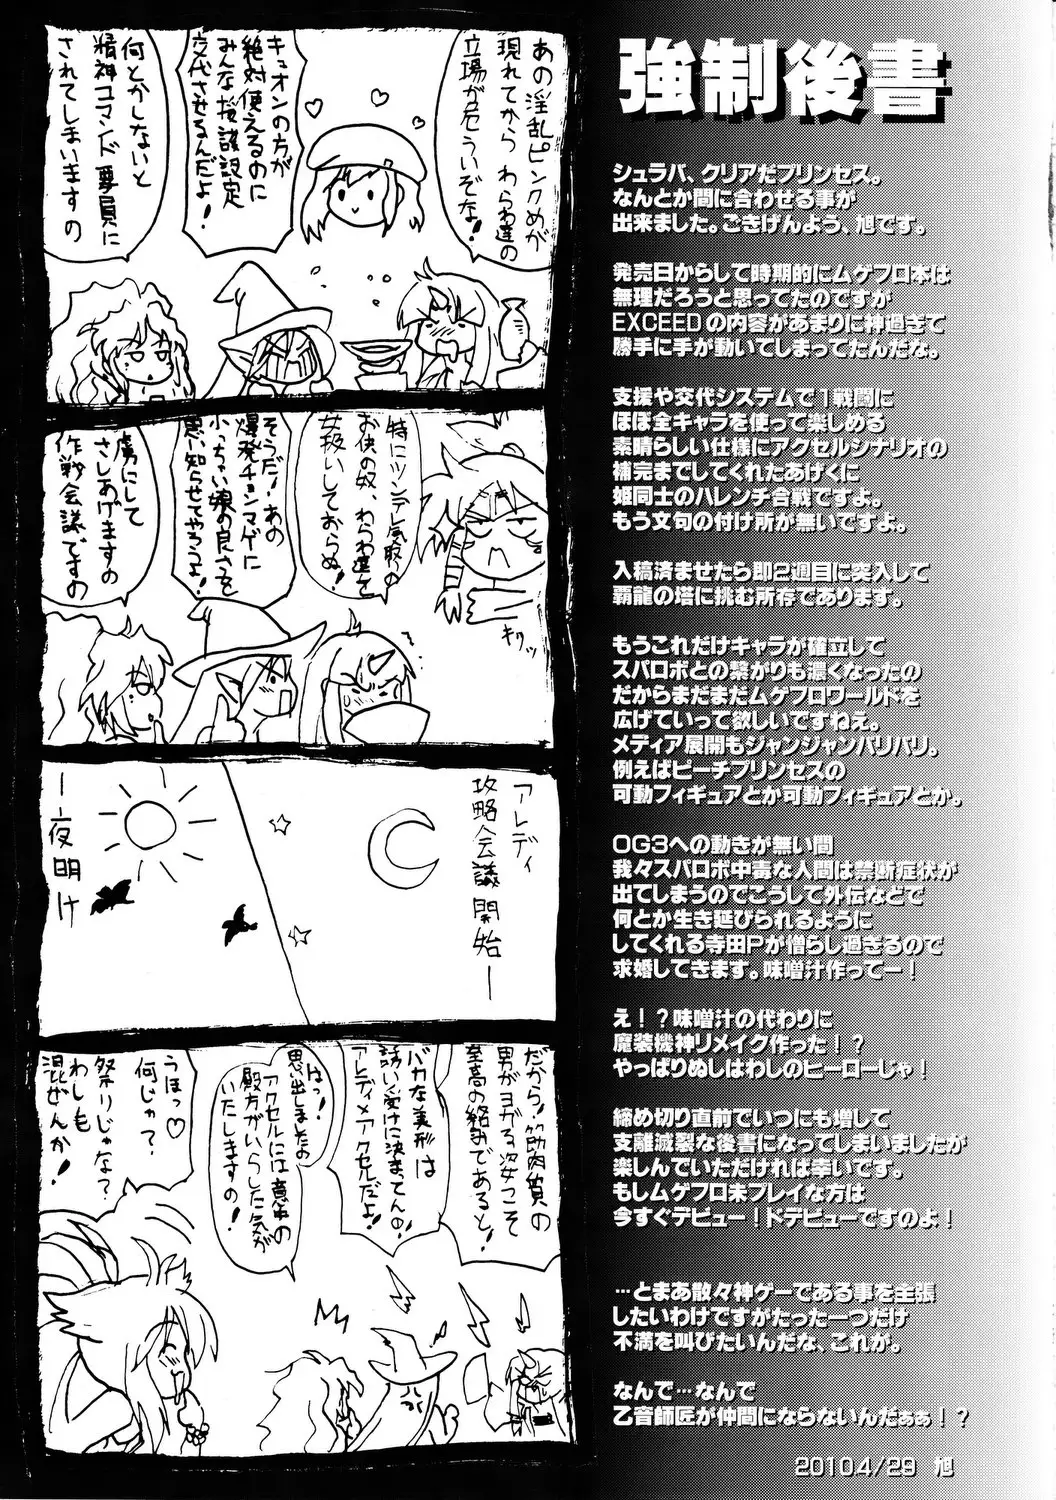 強制後書
シュラバ、クリアだプリンセス。
なんとか間に合わせる事が
出来ました。ごきげんよう、旭です。
発売日からして時期的にムゲフロ本は
無理だろうと思ってたのですが
EXCEEDの内容があまりに神過ぎて
勝手に手が動いてしまってたんだな。
支援や交代システムで1戦闘に
ほぼ全キャラを使って楽しめる
素晴らしい仕様にアクセルシナリオの
補完までしてくれたあげくに
姫同士のハレンチ合戦ですよ。
もう文句の付け所が無いですよ。
入稿済ませたら即2週目に突入して
覇龍の塔に挑む所存であります。
もうこれだけキャラが確立して
スパロボとの繋がりも濃くなったの
だからまだまだムゲフロワールドを
広げていって欲しいですねえ。
メディア展開もジャンジャンバリバリ。
例えばピーチプリンセスの
可動フィギュアとか可動フィギュアとか。
OG3への動きが無い間
我々スパロボ中毒な人間は禁断症状が
出てしまうのでこうして外伝などで
何とか生き延びられるように
してくれる寺田Pが憎らし過ぎるので
求婚してきます。味噌汁作ってー！
え！？味噌汁の代わりに
魔装機神リメイク作った！？
やっぱりぬしはわしのヒーローじゃ！
締め切り直前でいつにも増して
支離滅裂な後書になってしまいましたが
楽しんでいただければ幸いです。
もしムゲフロ未プレイな方は
今すぐデビュー！ドデビューですのよ！
…とまあ散々神ゲーである事を主張
したいわけですがたった一つだけ
不満を叫びたいんだな、これが。
なんで…なんで
乙音師匠が仲間にならないんだぁぁ！？
2010.4/29 旭
あの淫乱ピンクめが
現れてから わらわ達の
立場が危ういぞな！
キュオンの方が
絶対使えるのに
みんな援護設定
交代させるんだよ！
何とかしないと
精神コマンド要員に
されてしまいますの
特にツンデレ気取りの
お供の奴、わらわ達を
女扱いしておらぬ！
キリッ
そうだ！あの
爆発チョンマゲに
小っちゃい娘の良さを
思い知らせてやろうよ！
虜にして
さしあげますの
作戦会議ですの
アレディ
攻略会議開始ー
ー夜明け
だから！筋肉質の
男がヨガる姿こそ
至高の絡みであると！
バカな美形は
誘い受けに決まってんの！
アレディ×アクセルだよ！
はっ！
思い出しましたの
アクセルには意中の
殿方がいらした気が
いたしますの！
うほっ♡
何じゃ？
祭りじゃな？
わしも
混ぜんか！